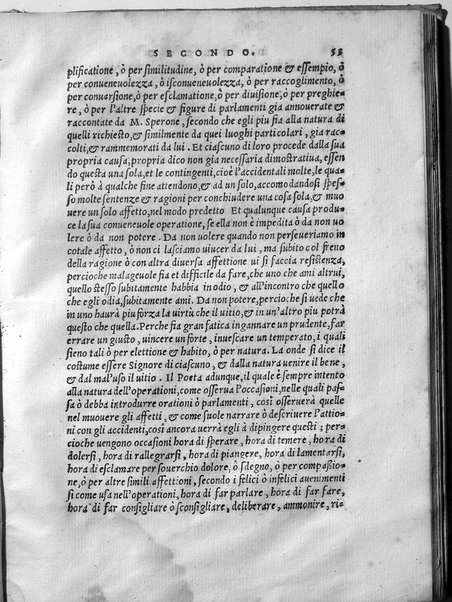 SECONDO. 55
plificatione, ò per similitudine, ò per comparatione & essempio, ò
per conueneuolezza, ò isconueneuolezza, ò per raccoglimento, ò
per conuersione, ò per esclamatione, ò per diuisione, ò per preghie
re, ò per l'altre specie & figure di parlamenti gia annouerate &
raccontate da M. Sperone, secondo che egli piu fia alla natura di
quelli richiesto, & similmente da quei luoghi particolari, gia rac
colti, & rammemorati da lui. Et ciascuno di loro procede dalla sua
propria causa, propria dico non gia necessaria dimostratiua, essen
do questa una sola, et le contingenti, cioè l'accidentali molte, le qua
li però à qualche fine attendono, & ad un solo, accomodandosi spes
so molte sentenze & ragioni per conchiudere una cosa sola, & mu
uere un solo affetto, nel modo predetto Et qualunque causa produ
ce la sua conueneuole operatione, se ella non è impedita ò da non uo
lere ò da non potere. Da non uolere quando non perseueriamo in
cotale affetto, ò non ci lasciamo uiucer da lui, ma subito col freno
della ragione ò con altra diuersa affettione ui si faccia resistenza,
percioche malageuole fia et difficile da fare, che uno che ami altrui,
quello stesso subitamente habbia in odio, & all'incontro che quello
che egli odia, subitamente ami. Da non potere, percio che si uede che
in uno haurà piu forza la uirtù che il uitio, & in un'altro piu potrà
questo che quella. Perche fia gran fatica ingannare un prudente, far
errare un giusto, uincere un forte, inuescare un temperato, i quali
sieno tali ò per elettione & habito, ò per natura. La onde si dice il
costume essere Signore di ciascuno, & dalla natura uenire il bene,
& dal mal'uso il uitio. Il Poeta adunque, il quale è sempre intento
alla natura dell'operationi, come osserua l'occasioni, nelle quali pos
sa ò debba introdurre orationi ò parlamenti, così osseruerà quelle
nel muouere gli affetti, & come suole narrare ò descriuere l'attio
ni con gli accidenti, così ancora uerrà egli à dipingere questi; per
cioche uengono occasioni hora di sperare, hora di temere, hora di
dolersi, hora di rallegrarsi, hora di piangere, hora di lamentarsi,
hora di esclamare per souerchio dolore, ò sdegno, ò per compassio
ne, ò per altre simili affettioni, secondo i felici ò infelici auenimenti
si come usa nell'operationi, hora di far parlare, hora di far fare,
hora di far consigliare ò sconsigliare, deliberare, ammonire, ri-